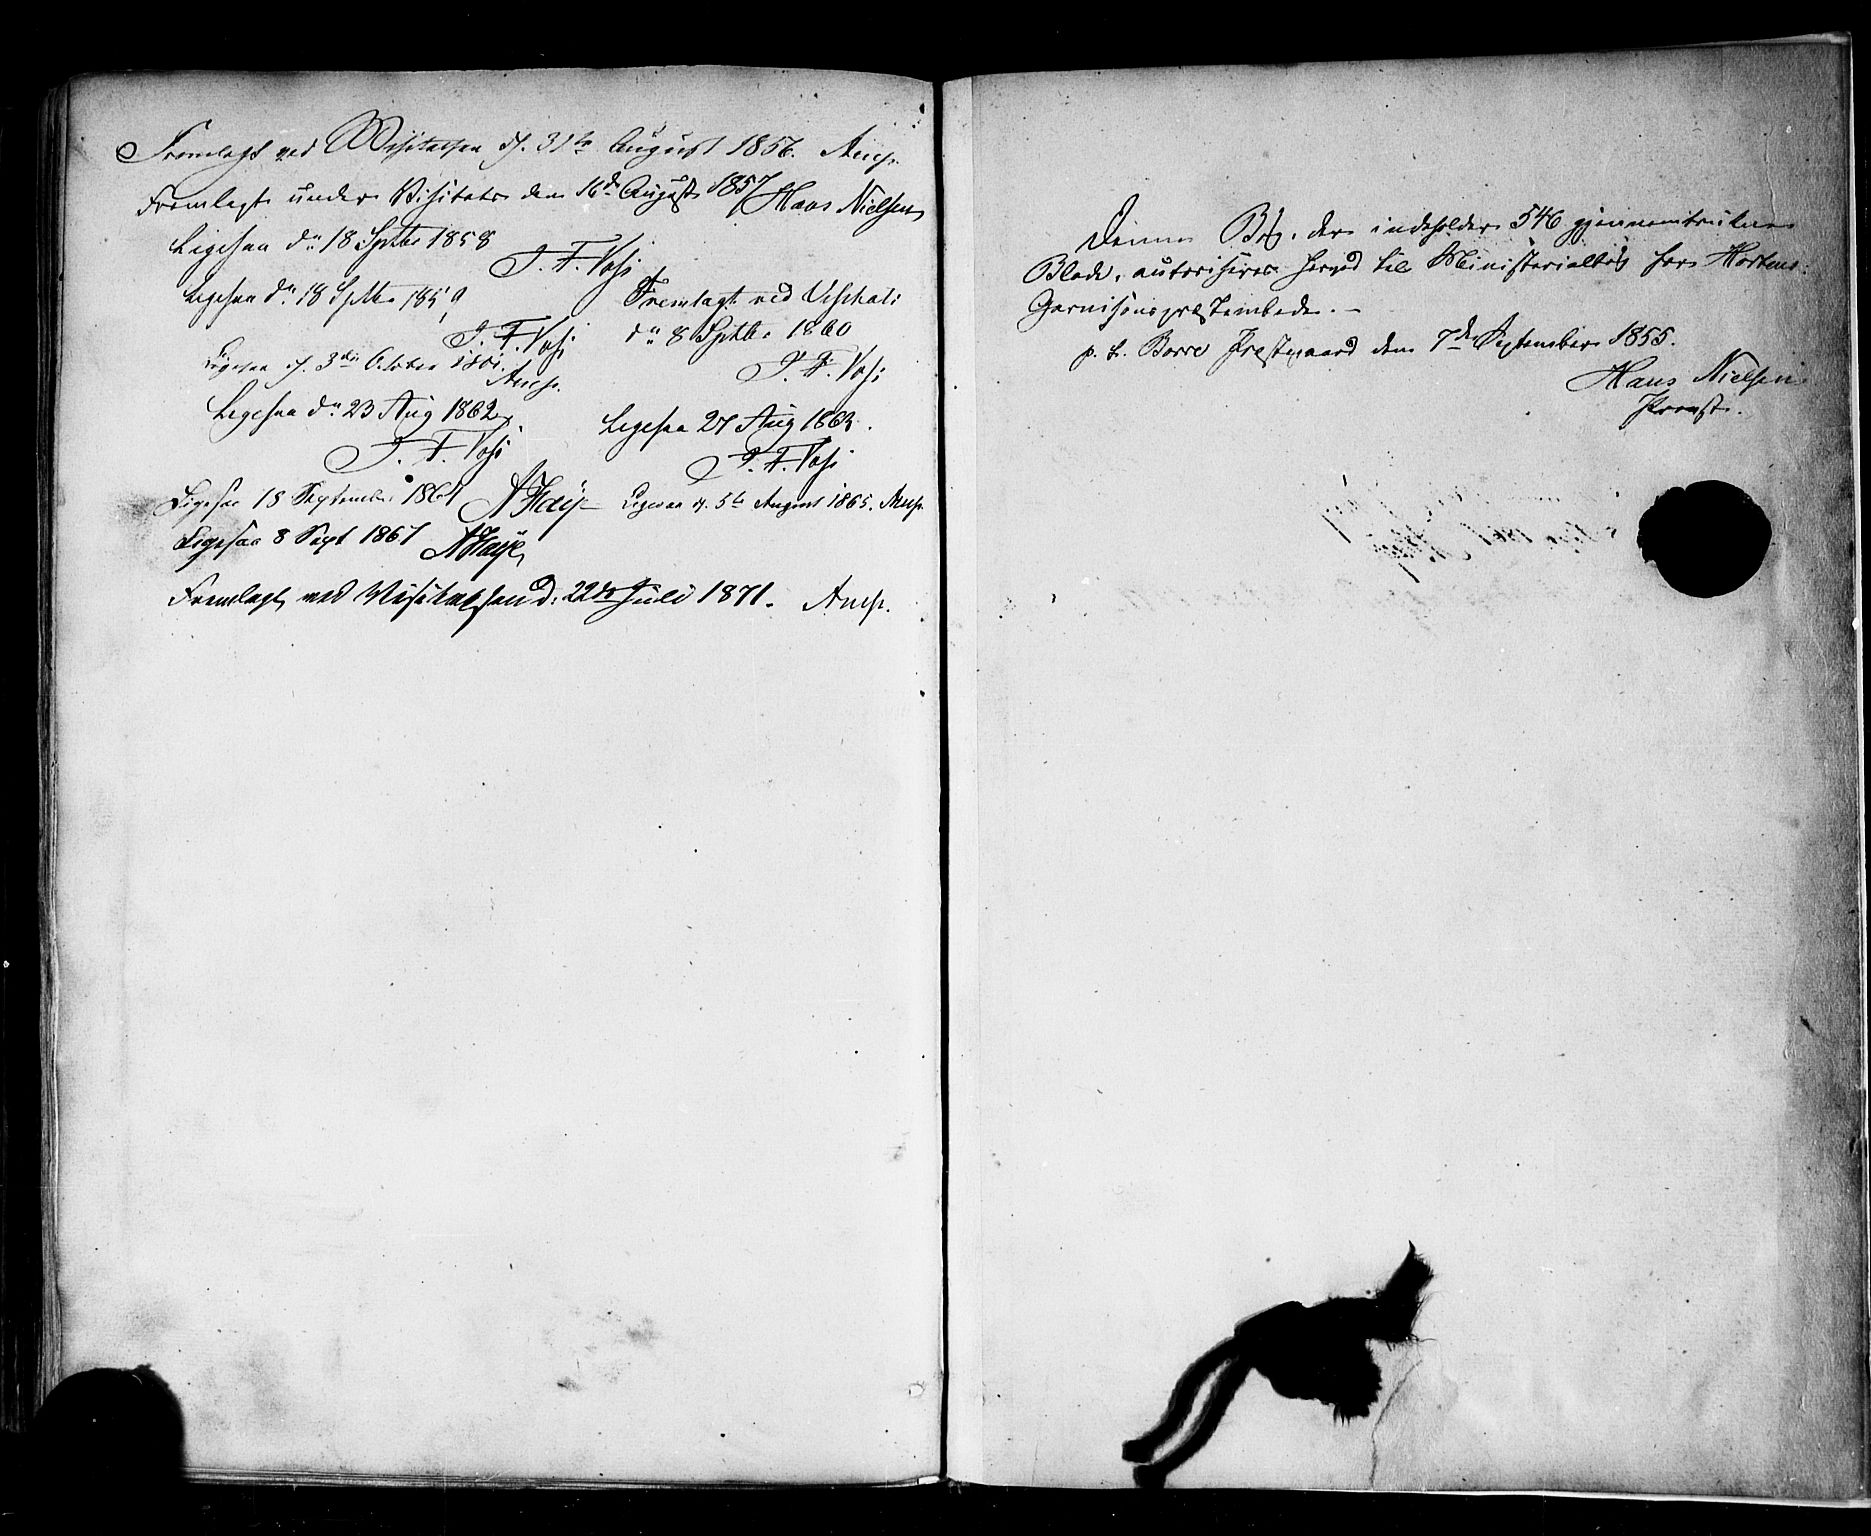 Fremlagt ved Visitatsen d. 31te August 1856. Arup.
Fremlagt under Visitats den 16de August 1857 Hans Nielsen
Ligesaa dn 18 Septbr 1858
J. F. Voss
Ligesaa dn 18 Septbr 1859
J. F. Voss
Fremlagt ved Visitats
dn 8 Septbr 1860
J. F. Voss
Ligesaa d. 3die October 1861.
Arup.
Ligesaa dn 23 Aug 1862
J. F. Voss
Ligesaa 27 Aug 1863.
J. F. Voss
Ligesaa 18 September 1864
Ligesaa d. 5te August 1865. Arup.
Ligesaa 8 Sept 1867
Fremlagt ved Visitatsen d: 22de Juli 1871. Arup.
Denne Bog, der indeholder 546 gjennemtrukne
Blade, autoriseres herved til Ministerialbog for Hortens
Garnisonspræstembede. —
p. t. Borre Præstegaard den 7de September 1855.
Hans Nielsen
Provst.